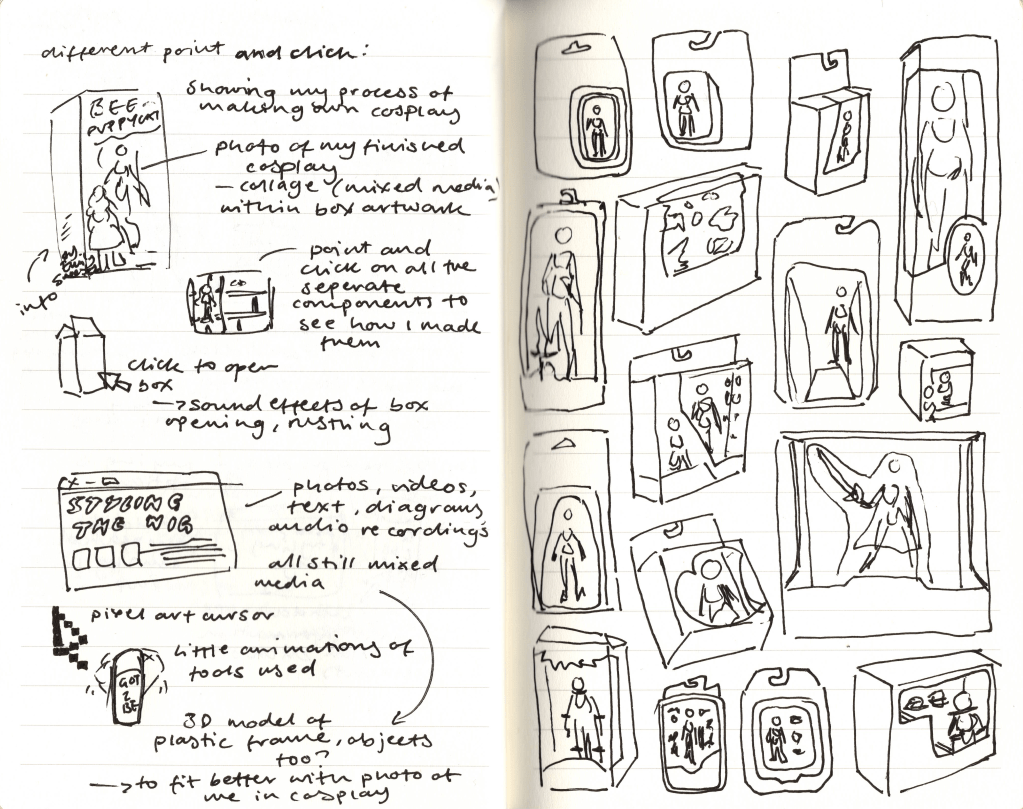 different point and click:
showing my process of
making own cosplay
BEE-
PUPPYCAT
photo of my finished
cosplay
- collage (mixed media)
within box artwork
point and
click on all the
seperate
components to
see how I made
them
into
click to open
box
→ sound effects of box
opening, rustling
X -
STYLING
THE WIG
photos, videos,
text, diagrams
audio recordings
all still mixed
media
pixel art cursor
little animations of
tools used
GOT
2
BE
3D model of
plastic frame, objects
too?
→ to fit better with photo of
me in cosplay